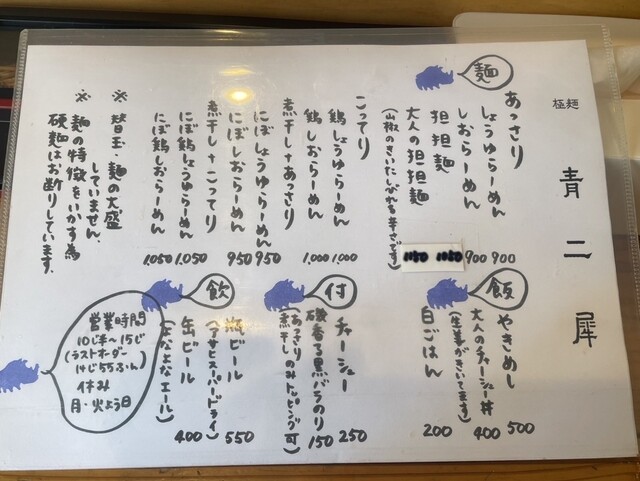 極麺 青二犀
麺
あっさり
しょうゆらーめん 900
しおらーめん 900
担担麺 1150
大人の担担麺 1150
(山椒のきいたしびれる辛さです)
こってり
鶏しょうゆらーめん 1,000
鶏しおらーめん 1,000
煮干し+あっさり
にぼしょうゆらーめん 950
にぼしおらーめん 950
煮干し+こってり
にぼ鶏しょうゆらーめん 1,050
にぼ鶏しおらーめん 1,050
※ 替玉・麺の大盛
していません。
※ 麺の特徴をいかす為
硬麺はお断りしています。
飯
やきめし 500
大人のチャーシュー丼 400
(生姜がきいてます)
白ごはん 200
付
チャーシュー 250
磯香る黒バラのり 150
(あっさり
煮干しのみトッピング可)
飲
瓶ビール 550
(アサヒスーパードライ)
缶ビール 400
(よなよなエール)
営業時間
10じ半〜15じ
(ラストオーダー
14じ55ふん)
休み
月・火よう日